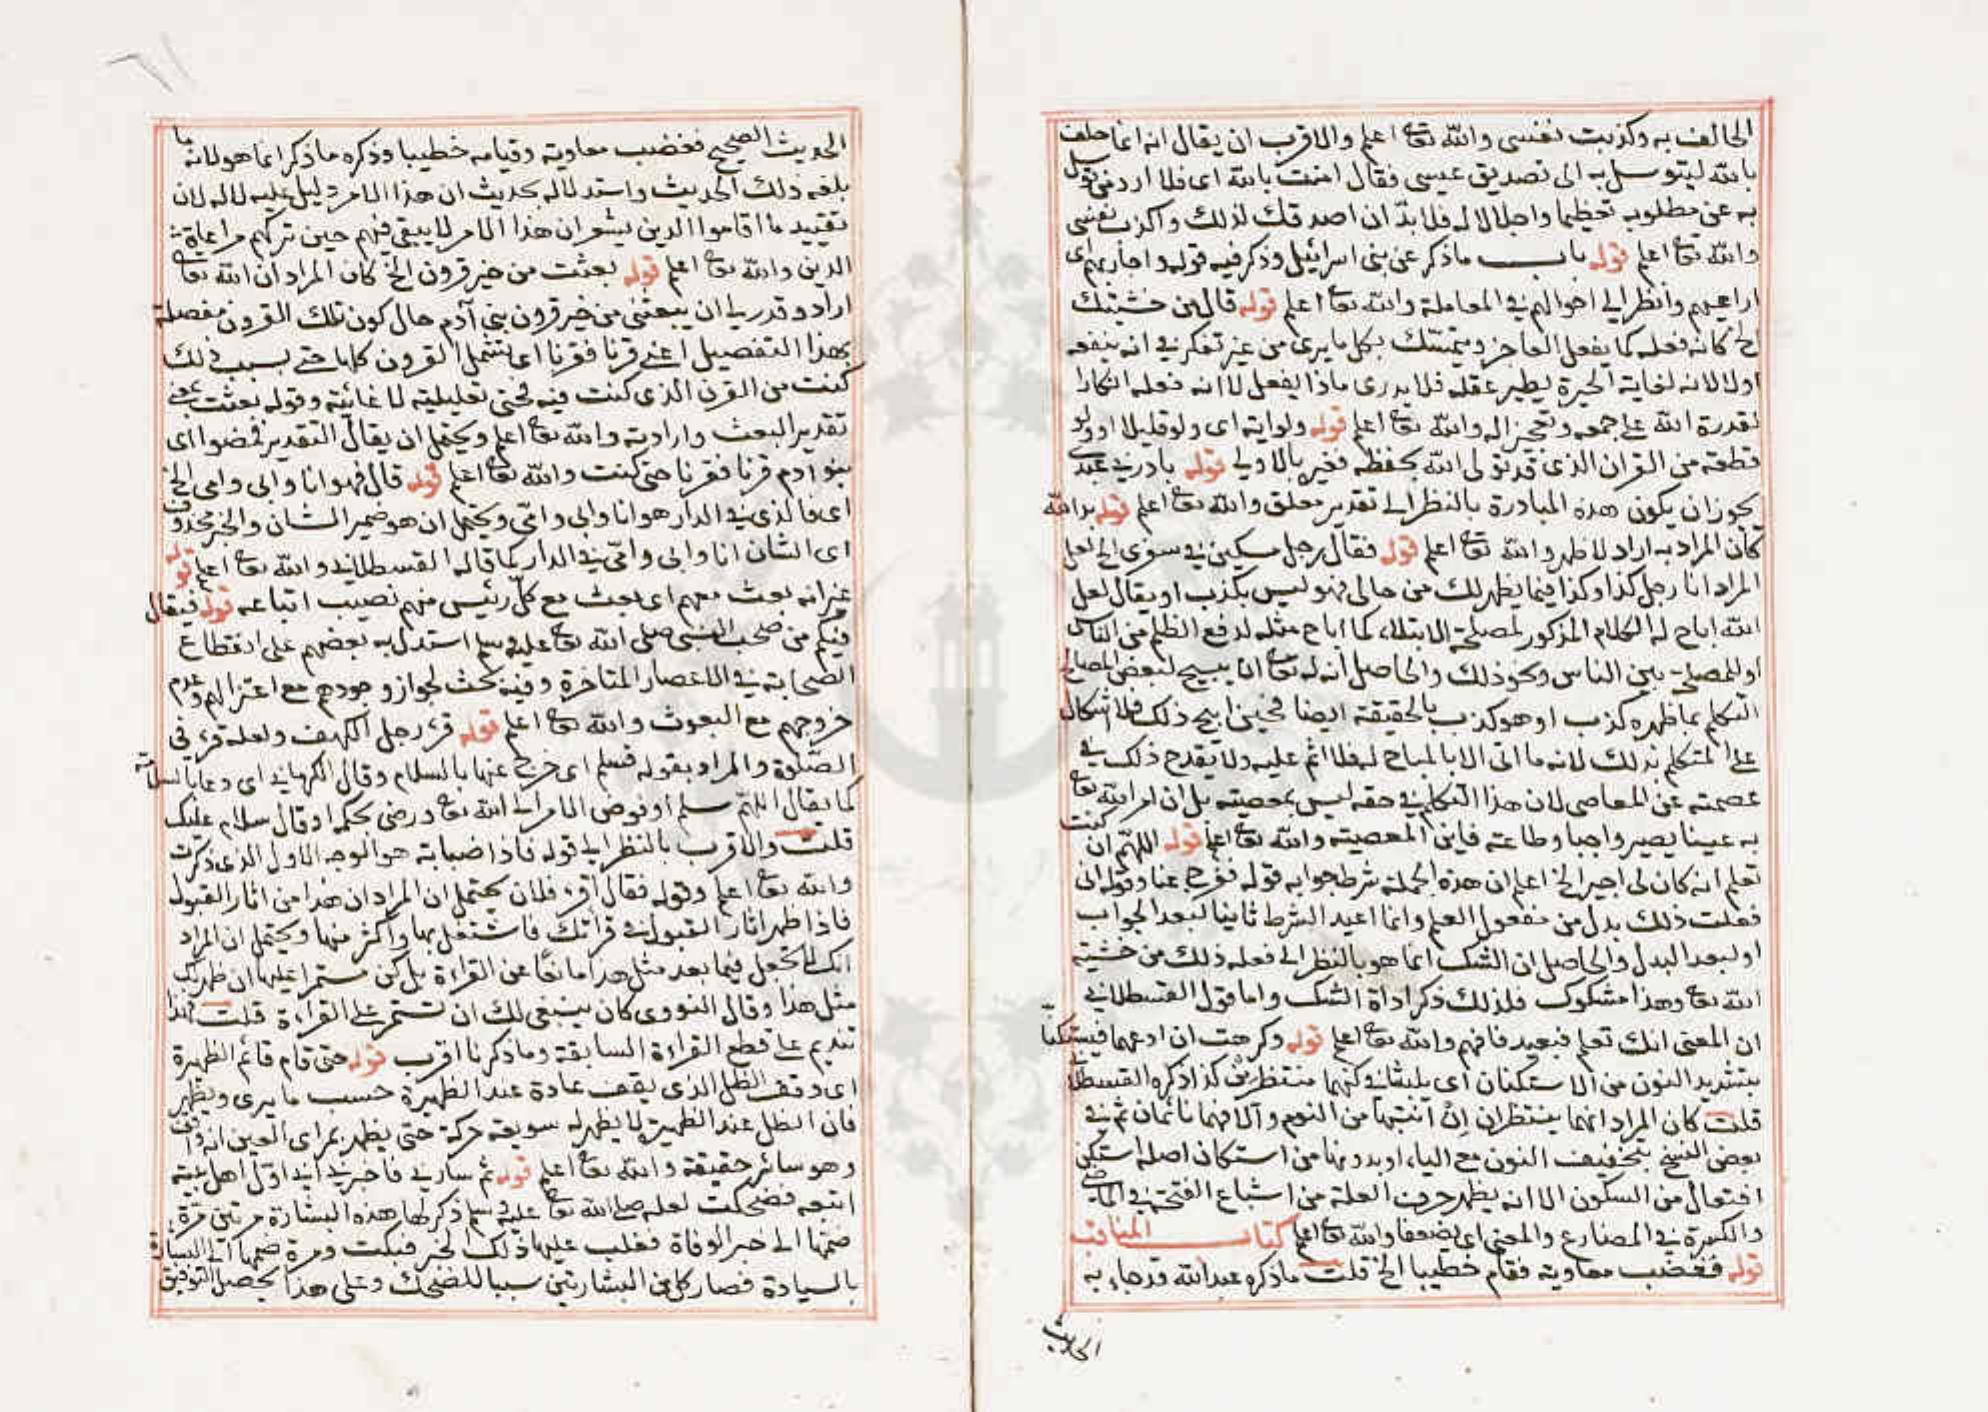 الحالف به وكذبت نفسى والله تعا اعلم والاقرب ان يقال انه انما حلف
بالله ليتوسل به الى تصديق عيسى فقال امنت بالله اى فلا ارد من توسل
به عن مطلوبه تعظيما واجلالا له فلا بدّ ان اصدقك لذلك واكذب نفسى
والله تعا اعلم قوله باب ماذكر عن بنى اسرائيل وذكر فيه قوله واجازيهم اى
اراعيهم وانظر الى احوالهم فى المعاملة والله تعا اعلم قوله قال من خشيتك
الخ كانه فعله كما يفعل العاجز ويتمسّك بكل مايرى من غير تفكر فى انه ينفعه
اولا لانه لغاية الحيرة يطير عقله فلا يدرى ماذا يفعل لا انه فعله انكارا
لقدرة الله على جمعه وتعجيزا له والله تعا اعلم قوله ولو اية اى ولو قليلا اولو
قطعة من القران الذى قد تولى الله بحفظه فغيره بالاولى قوله بادرنى عبدى
يجوز ان يكون هذه المبادرة بالنظر الى تقدير معلق والله تعا اعلم قوله بدا لله
كان المراد به اراد لاظهر والله تعا اعلم قوله فقال رجل مسكين فى سفرى الخ لعل
المراد انا رجل كذا وكذا فيما يظهر لك من حالى فهو ليس بكذب او يقال لعل
الله اباح له الكلام المذكور لمصلحة الابتلاء كما اباح مثله لدفع الظلم من الناس
او للمصلح بين الناس ونحو ذلك والحاصل انه له تعا انا يبيح لبعض المصالح
التكلم بما ظهره كذب او هو كذب بالحقيقة ايضا فحين ابيح ذلك فلا اشكال
على المتكلم بذلك لانه ما اتى الا بالمباح له فلا اثم عليه ولا يقدح ذلك فى
عصمته عن المعاصى لان هذا التكلم فى حقه ليس بمعصيته بل ان امر الله تعا
به عينا يصير واجبا وطاعته فاين المعصيته والله تعا اعلم قوله اللهم ان كنت
تعلم انه كان لى اجير الخ اعلم ان هذه الجملة شرط جوابه قوله ففرج عنا وقوله انى
فعلت ذلك بدل من مفعول العلم وانما اعيد الشرط ثانيا لبعد الجواب
او لبعد البدل والحاصل ان الشك انما هو بالنظر الى فعله ذلك من خشيته
الله تعا وهذا مشكوك فلذلك ذكر اداة الشك واما قول القسطلانى
ان المعنى انك تعلم فبعيد فافهم والله تعا اعلم قوله وكرهت ان ادعهما فيستكنا
بتشديد النون من الاستكنان اى يلبثا فى كنهما منتظرين كذا ذكره القسطلانى
قلت كان المراد انهما ينتظران إنْ انتبها من النوم والا فهما نائمان ثم فى
بعض النسخ بتخفيف النون مع الياء او بدونها من استكان اصله استكن
افتعال من السكون الا انه يظهر حرف العلة من اشباع الفتحة فى الماضى
والكسرة فى المضارع والمعنى اى يضعفا والله تعا اعلم كتاب المناقب
قوله فغضب معاوية فقام خطيبا الخ قلت ماذكره عبدالله قد جاء به
الحديث
الحديث الصحيح فغضب معاويته وقيامه خطيبا وذكره ماذكر انما هو لانه ما
بلغه ذلك الحديث واستدلاله بحديث ان هذا الامر دليل عليه لا له لان
تقييد ما اقاموا الدين يشير ان هذا الامر لا يبقى فيهم حين تركهم مراعاة
الدين والله تعا اعلم قوله بعثت من خير قرون الخ كان المراد ان الله تعا
اراد وقدر لى ان يبعثنى من خير قرون بنى آدم حال كون تلك القرون مفصلة
بهذا التفصيل اعنى قرنا فقرنا اى تشمل القرون كلها حتى بسبب ذلك
كنت من القرن الذى كنت فيه فحتى تعليلية لا غائيته وقوله بعثت بمعنى
تقدير البعث وارادته والله تعا اعلم ويحتمل ان يقال التقدير فمضوا اى
بنو ادم قرنا فقرنا حتى كنت والله تعا اعلم قوله قال فهو انا وابى وامى الخ
اى فالذى فى الدار هو انا وابى وامّى ويحتمل ان هو ضمير الشان والخبر محذوف
اى الشان انا وابى وامّى فى الدار كما قاله القسطلانى والله تعا اعلم قوله
غير انه بعث معهم اى بعث مع كلّ رئيس منهم نصيب اتباعه قوله فيقال
فيكم من صاحب النبى صلى الله تعا عليه وسلم استدل به بعضهم على انقطاع
الصحابة فى الاعصار المتاخرة وفيه بحث لجواز وجودهم مع اعتزالهم وعدم
خروجهم مع البعوث والله تعا اعلم قوله قرء رجل الكهف ولعله قرء فى
الصّلوة والمراد بقوله فسلم اى خرج عنها بالسلام وقال الكرمانى اى دعا بالسلامة
كما يقال اللهمّ سلم او فوض الامر الى الله تعا ورضى بحكمه او قال سلام عليك
قلت والاقرب بالنظر الى قوله فاذا ضبابة هو الوجه الاول الذى ذكرت
والله تعا اعلم وقوله فقال اقرء فلان يحتمل ان المراد ان هذا من اثار القبول
فاذا ظهر اثار القبول فى قرأتك فاشتغل بها واكثر منها ويحتمل ان المراد
انك لا تجعل فيما بعد مثل هذا مانعا عن القراءة بل كن مستمرا عليها ان ظهر لك
مثل هذا وقال النووى كان ينبغى لك ان تستمر على القراءة قلت فهذا
تنديم على قطع القراءة السابقة وما ذكرنا اقرب قوله حتى قام قائم الظهيرة
اى وقف الظل الذى يقف عادة عند الظهيرة حسب ما يرى ويظهر
فان الظل عند الظهيرة لا يظهر له سويعة حركة حتى يظهر بمراى العين انه واقف
وهو سائر حقيقة والله تعا اعلم قوله ثم سارنى فاخبرنى انى اوّل اهل بيته
اتبعه فضحكت لعله صلى الله تعا عليه وسلم ذكر لها هذه البشارة مرتين مرّة
ضمّها الى خبر الوفاة فغلب عليها ذلك الخبر فبكت ومرة ضمها الى البشارة
بالسيادة فصار كل من البشارتين سببا للضحك وعلى هذا يحصل التوفيق